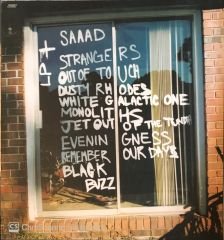 SAAAD
STRANGERS
OUT OF TOUCH
DUSTY RHODES
WHITE GALACTIC ONE
MONOLITHS
JET OUT OF THE TUNDRA
EVENINGNESS
REMEMBER OUR DAYS
BLACK
BUZZ
CS